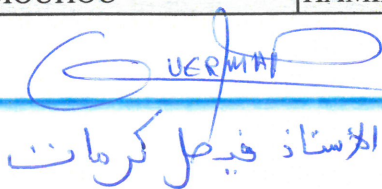 GUERMAT
الأستاذ فيصل كرمات